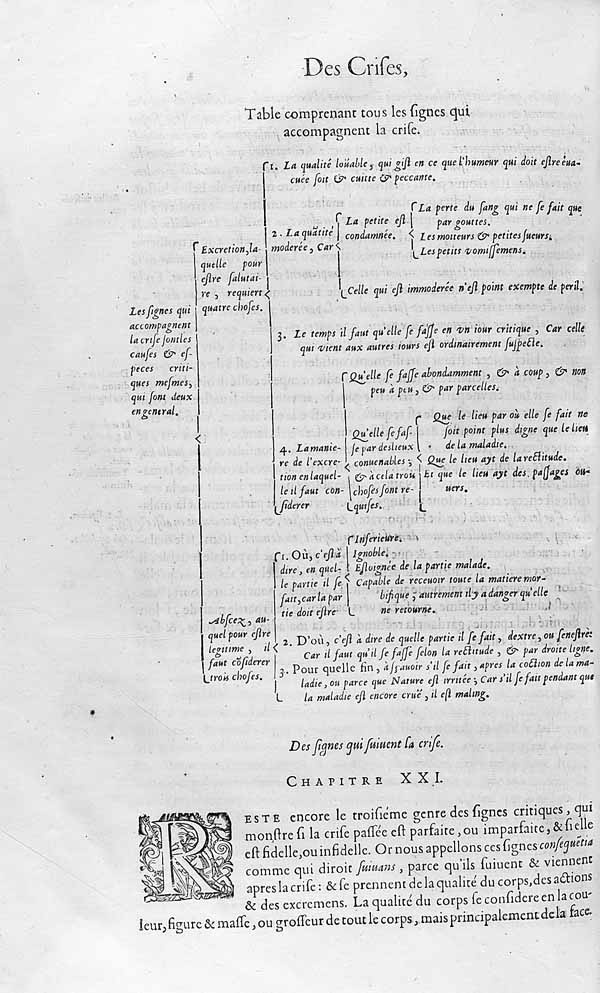 Des Criſes,
Table comprenant tous les ſignes qui
accompagnent la criſe.
Les ſignes qui
accompagnent
la criſe ſont les
cauſes & eſ-
peces criti-
ques meſmes,
qui ſont deux
en general.
Excretion, la-
quelle pour
eſtre ſalutai-
re, requiert
quatre choſes.
1. La qualité loüable, qui giſt en ce que l'humeur qui doit eſtre éua-
cuée ſoit & cuitte & peccante.
2. La quãtité
moderée, Car
La petite eſt
condamnée.
La perte du ſang qui ne ſe fait que
par gouttes.
Les moiteurs & petites ſueurs.
Les petits vomiſſemens.
Celle qui eſt immoderée n'eſt point exempte de peril.
3. Le temps il faut qu'elle ſe faſſe en vn iour critique, Car celle
qui vient aux autres iours eſt ordinairement ſuſpecte.
4. La manie-
re de l'excre-
tion en laquel-
le il faut con-
ſiderer
Qu'elle ſe faſſe abondamment, & à coup, & non
peu à peu, & par parcelles.
Qu'elle ſe faſ-
ſe par des lieux
conuenables;
& à cela trois
choſes ſont re-
quiſes.
Que le lieu par où elle ſe fait ne
ſoit point plus digne que le lieu
de la maladie.
Que le lieu ayt de la rectitude.
Et que le lieu ayt des paſſages ou-
uers.
Abſcez, au-
quel pour eſtre
legitime, il
faut cõſiderer
trois choſes.
1. Où, c'eſt à
dire, en quel-
le partie il ſe
fait, car la par
tie doit eſtre
Inferieure.
Ignoble.
Eſloignée de la partie malade.
Capable de receuoir toute la matiere mor-
bifique; autrement il y a danger qu'elle
ne retourne.
2. D'où, c'eſt à dire de quelle partie il ſe fait, dextre, ou ſeneſtre:
Car il faut qu'il ſe faſſe ſelon la rectitude, & par droite ligne.
3. Pour quelle fin, à ſçauoir s'il ſe fait, apres la coction de la ma-
ladie, ou parce que Nature eſt irritée; Car s'il ſe fait pendant que
la maladie eſt encore cruë, il eſt maling.
Des ſignes qui ſuiuent la criſe.
CHAPITRE XXI.
RESTE encore le troiſiéme genre des ſignes critiques, qui
monſtre ſi la criſe paſſée eſt parfaite, ou imparfaite, & ſi elle
eſt fidelle, ou infidelle. Or nous appellons ces ſignes conſequētia
comme qui diroit ſuiuans, parce qu'ils ſuiuent & viennent
apres la criſe: & ſe prennent de la qualité du corps, des actions
& des excremens. La qualité du corps ſe conſidere en la cou-
leur, figure & maſſe, ou groſſeur de tout le corps, mais principalement de la face.